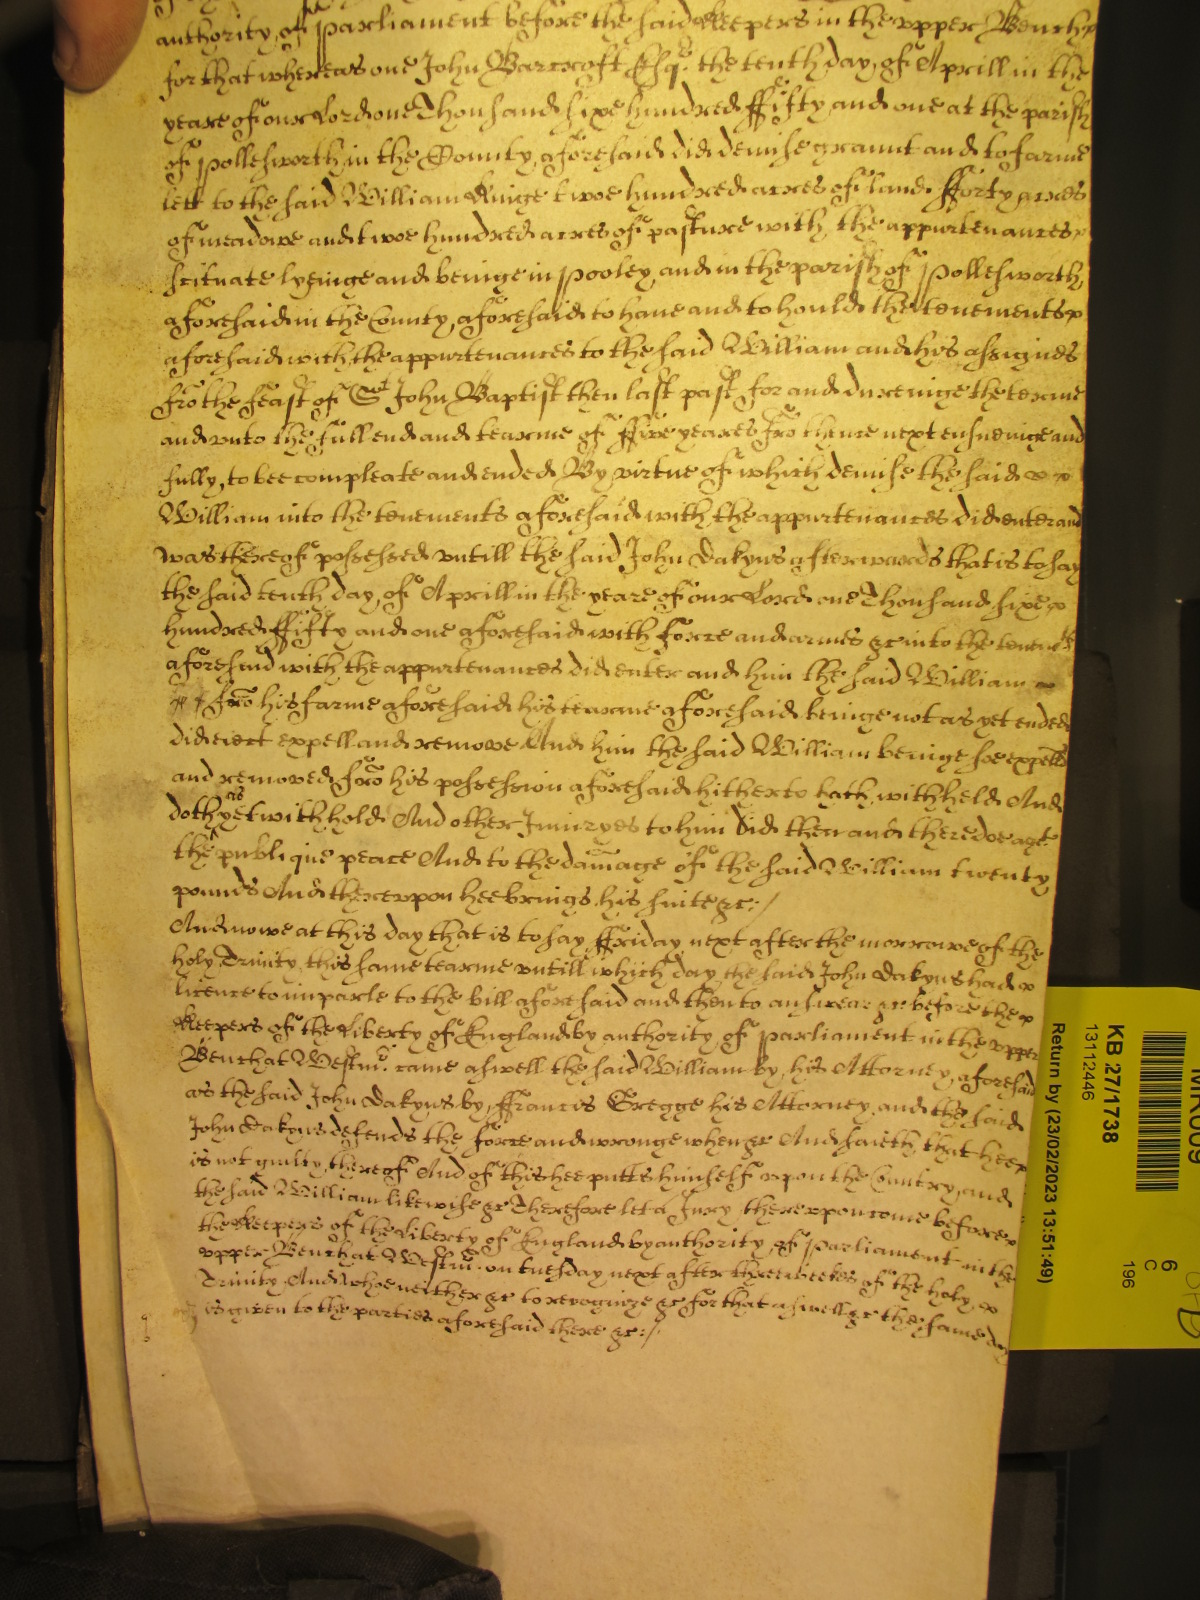 authority of Parliament before the said Keepers in the upper Bench
for that whereas one John Barcroft Esqr. the tenth day of Aprill in the
yeare of our Lord one Thousand sixe hundred ffifty and one at the parish
of Pollesworth in the County aforesaid did demise graunt and to farme
lett to the said William Kinge twoe hundred acres of land fforty acres
of meadowe and twoe hundred acres of pasture with the appurtenances
scituate lyeinge and beinge in Pooley and in the parish of Pollesworth
aforesaid in the County aforesaid to have and to hould the tenements
aforesaid with the appurtenances to the said William and his assignes
fro the feast of St John Baptist then last past for and dureinge the terme
and unto the full end and tearme of ffive yeares fro thence next ensueinge and
fully to bee compleate and ended By virtue of which demise the said
William into the tenements aforesaid with the appurtenances did enter and
was thereof possessed untill the said John Dakyns afterwards that is to say
the said tenth day of Aprill in the yeare of our Lord one Thousand sixe
hundred ffifty and one aforesaid with force and armes &c into the tenemts
aforesaid with the appurtenances did enter and him the said William
fro his farme aforesaid his tearme aforesaid beinge not as yet ended
did eiect expell and remove And him the said William beinge soe expelld
and removed fro his possession aforesaid hitherto hath withheld And
doth as yet withhold And other Iniuryes to him did then and there doe agt
the publique peace And to the damage of the said William twenty
pounds And thereupon hee brings his suite &c:/
And nowe at this day that is to say ffriday next after the morrowe of the
holy Trinity this same tearme untill which day the said John Dakyns had
licence to imparle to the bill aforesaid and then to answear &c before the
Keepers of the Liberty of England by authority of Parliament in the upper
Bench at Westmr. came aswell the said William by his Attorney aforesaid
as the said John Dakyns by ffrancis Gregge his Attorney and the said
John Dakyns defends the force and wronge when &c And saieth that hee
is not guilty thereof And of this hee putts himself upon the Country and
the said William likewise &c Therefore let a Jury thereupon come before
the Keepers of the Liberty of England by authority of Parliament in the
upper Bench at Westmr. on tuesday next after three weekes of the holy
Trinity And whoe neither &c to recognize &c for that aswell &c the same day
is given to the parties aforesaid there &c:/
KB 27/1738
13112446
Return by (23/02/2023 13:51:49)
6
C
196